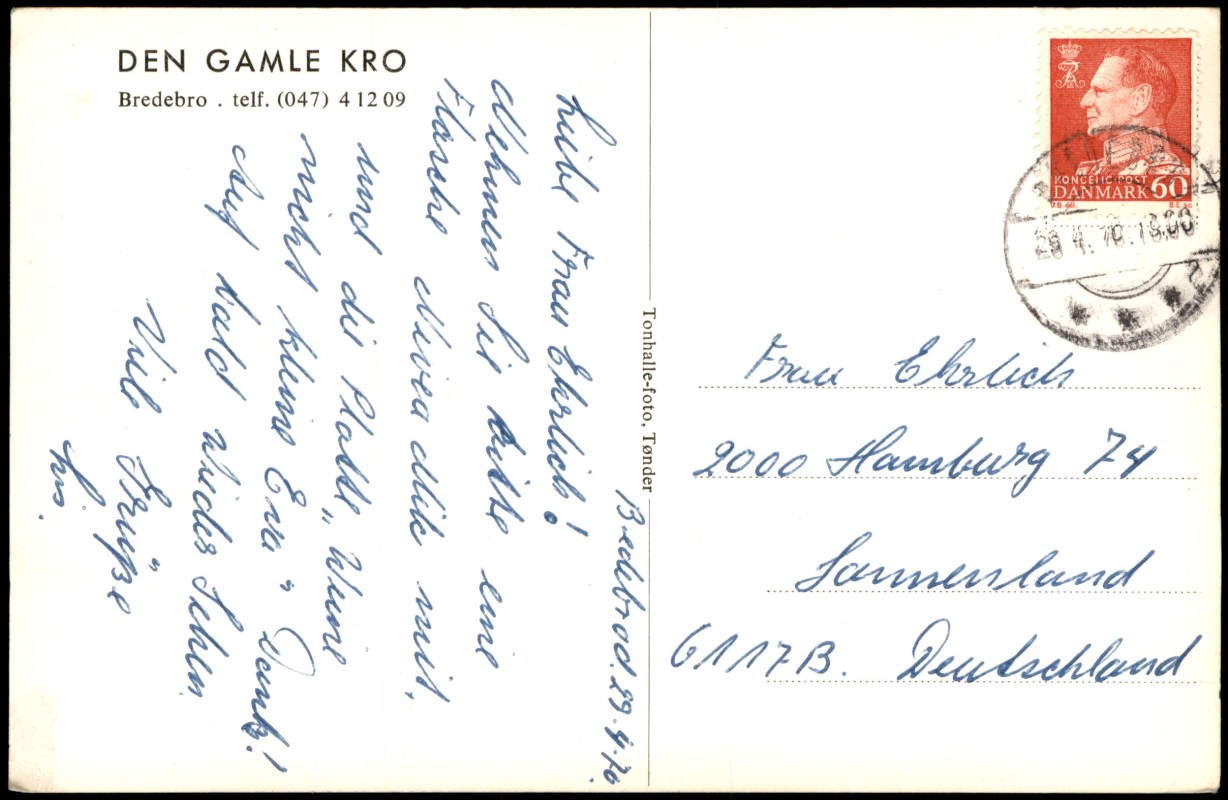 DEN GAMLE KRO
Bredebro . telf. (047) 4 12 09
Bredebro d. 29.4.70.
Liebe Frau Ehrlich!
Nehmen Sie bitte eine
Flasche Nivea Milk mit,
und die Platte „Weine
nicht kleine Eva" Dank!
Auf bald Wieder Sehen
Viele Grüße
Tonhalle-foto, Tønder
KONGELIG POST
DANMARK 60
4.70.18.00
Frau Ehrlich
2000 Hamburg 74
Sonnenland
61 17B. Deutschland